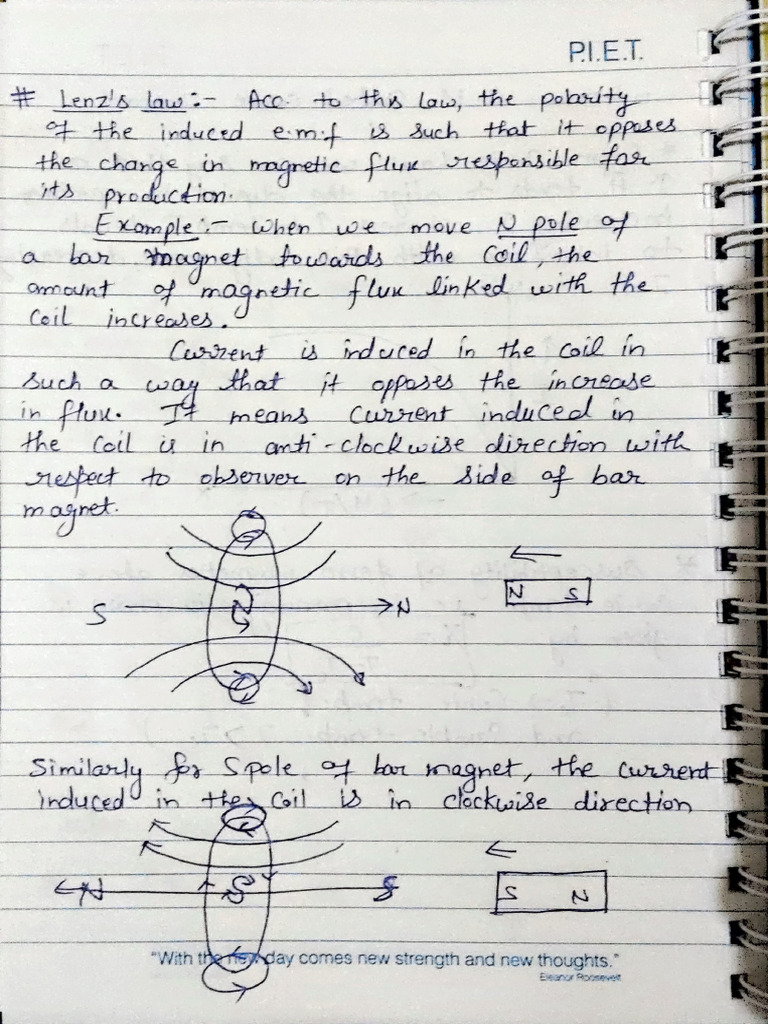 P.I.E.T.
# Lenz's law :- Acc. to this law, the polarity
of the induced e.m.f is such that it opposes
the change in magnetic flux responsible for
its production.
Example :- When we move N pole of
a bar magnet towards the coil, the
amount of magnetic flux linked with the
coil increases.
Current is induced in the coil in
such a way that it opposes the increase
in flux. It means current induced in
the coil is in anti-clockwise direction with
respect to observer on the side of bar
magnet.
S N N S
Similarly for S pole of bar magnet, the current
induced in the coil is in clockwise direction
N S S S N
"With the new day comes new strength and new thoughts."
Eleanor Roosevelt